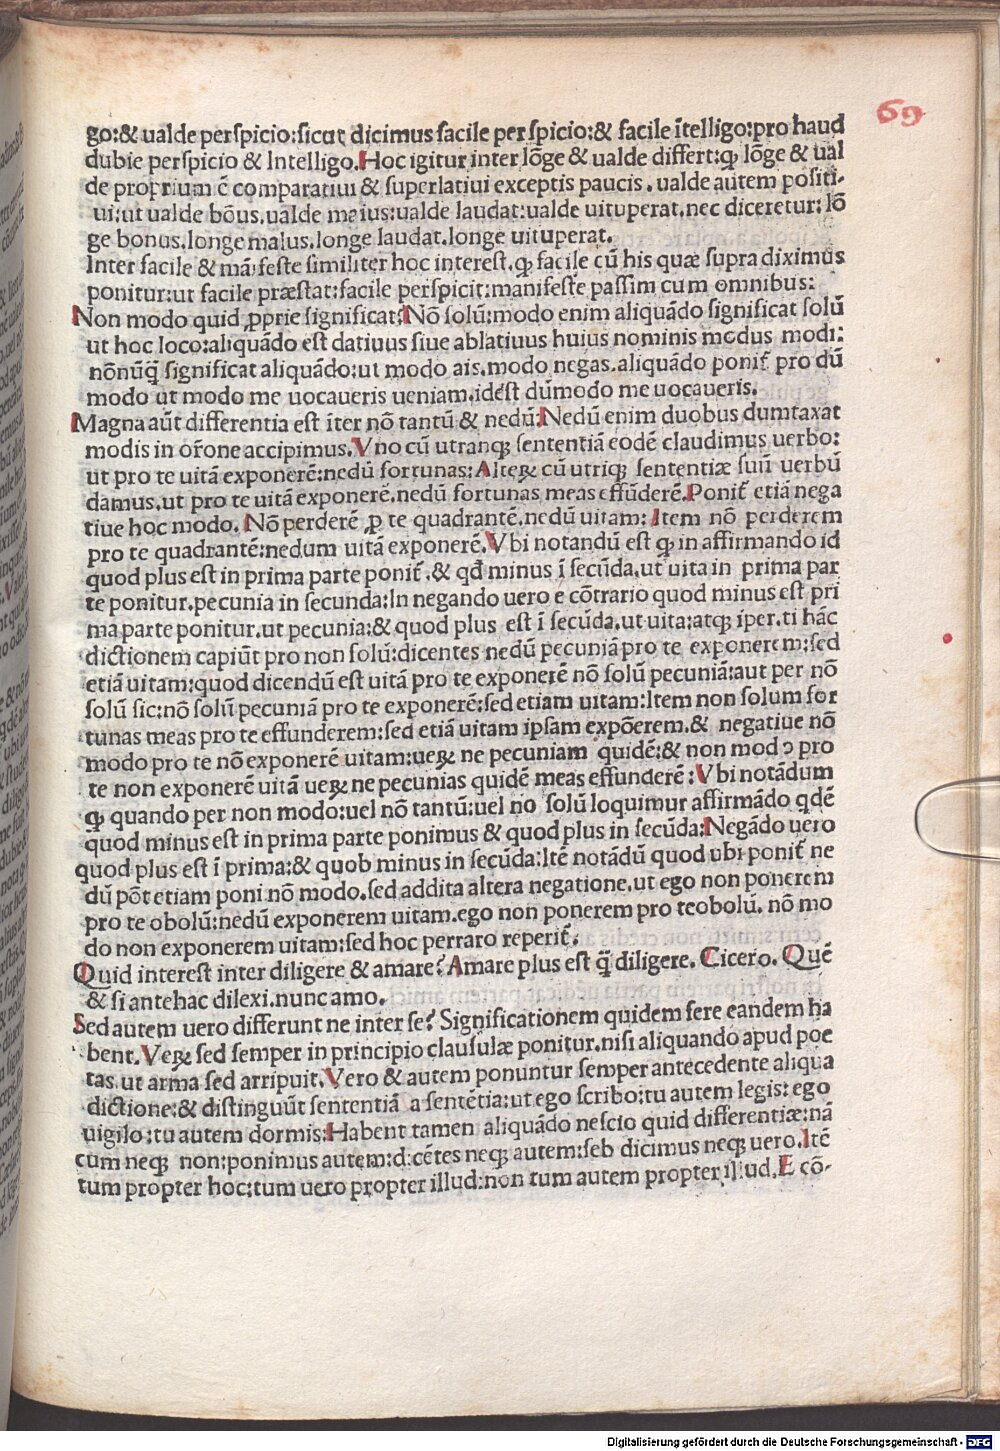 69
go:& ualde perſpicio:ſicut dicimus facile perſpicio:& facile ītelligo:pro haud
dubie perſpicio & Intelligo.Hoc igitur inter lōge & ualde differt:ꝙ lōge & ual
de proprium ē comparatiui & ſuperlatiui exceptis paucis.ualde autem poſiti-
ui:ut ualde bōus.ualde maius:ualde laudat:ualde uituperat.nec diceretur: lō
ge bonus.longe malus.longe laudat.longe uituperat.
Inter facile & māifeſte ſimiliter hoc intereſt.ꝙ facile cū his quæ ſupra diximus
ponitur:ut facile præſtat:facile perſpicit:manifeſte paſſim cum omnibus:
Non modo quid ꝓprie ſignificat:Nō ſolū:modo enim aliquādo ſignificat ſolū
ut hoc loco:aliquādo eſt datiuus ſiue ablatiuus huius nominis modus modi:
nōnūq̄ ſignificat aliquādo:ut modo ais.modo negas.aliquādo ponit̄ pro dū
modo ut modo me uocaueris ueniam.ideſt dūmodo me uocaueris.
Magna aūt differentia eſt iter nō tantū & nedū:Nedū enim duobus dumtaxat
modis in or̄one accipimus.Vno cū utranqꝫ ſententiā eodē claudimus uerbo:
ut pro te uitā exponerē:nedū fortunas:Alteꝝ cū utriqꝫ ſententiæ ſuū uerbū
damus.ut pro te uitā exponerē.nedū fortunas meas effūderē.Ponit̄ etiā nega
tiue hoc modo. Nō perderē ꝓ te quadrantē.nedū uitam: Item nō perderem
pro te quadrantē:nedum uitā exponerē.Vbi notandū eſt ꝙ in affirmando id
quod plus eſt in prima parte ponit̄.& qđ minus ī ſecūda.ut uita in prima par
te ponitur.pecunia in ſecunda:In negando uero e cōtrario quod minus eſt pri
ma parte ponitur.ut pecunia:& quod plus eſt ī ſecūda.ut uita:atqꝫ iper.ti hāc
dictionem capiūt pro non ſolū:dicentes nedū pecuniā pro te exponerem:ſed
etiā uitam:quod dicendū eſt uitā pro te exponerē nō ſolū pecuniā:aut per nō
ſolū ſic:nō ſolū pecuniā pro te exponerē:ſed etiam uitam:Item non ſolum for
tunas meas pro te effunderem:ſed etiā uitam ipſam expōerem.& negatiue nō
modo pro te nō exponerē uitam:ueꝝ ne pecuniam quidē:& non modo pro
te non exponerē uitā ueꝝ ne pecunias quidē meas effunderē:Vbi notādum
ꝙ quando per non modo:uel nō tantū:uel no ſolū loquimur affirmādo qdē
quod minus eſt in prima parte ponimus & quod plus in ſecūda:Negādo uero
quod plus eſt ī prima:& quob minus in ſecūda:Itē notādū quod ubi ponit̄ ne
dū pōt etiam poni nō modo.ſed addita altera negatione.ut ego non ponerem
pro te obolū:nedū exponerem uitam.ego non ponerem pro teobolū. nō mo
do non exponerem uitam:ſed hoc perraro reperit̄.
Quid intereſt inter diligere & amare? Amare plus eſt q̄ diligere. Cicero. Quē
& ſi antehac dilexi.nunc amo.
Sed autem uero differunt ne inter ſe? Significationem quidem fere eandem ha
bent.Veꝝ ſed ſemper in principio clauſulæ ponitur.niſi aliquando apud poe
tas.ut arma ſed arripuit.Vero & autem ponuntur ſemper antecedente aliqua
dictione:& diſtinguūt ſententiā a ſentētia:ut ego ſcribo:tu autem legis: ego
uigilo:tu autem dormis:Habent tamen aliquādo neſcio quid differentiæ:nā
cum neqꝫ non:ponimus autem:dicētes neqꝫ autem:ſeb dicimus neqꝫ uero.Itē
tum propter hoc:tum uero propter illud:non tum autem propter illud.E cō-
Digitalisierung gefördert durch die Deutsche Forschungsgemeinschaft - DFG